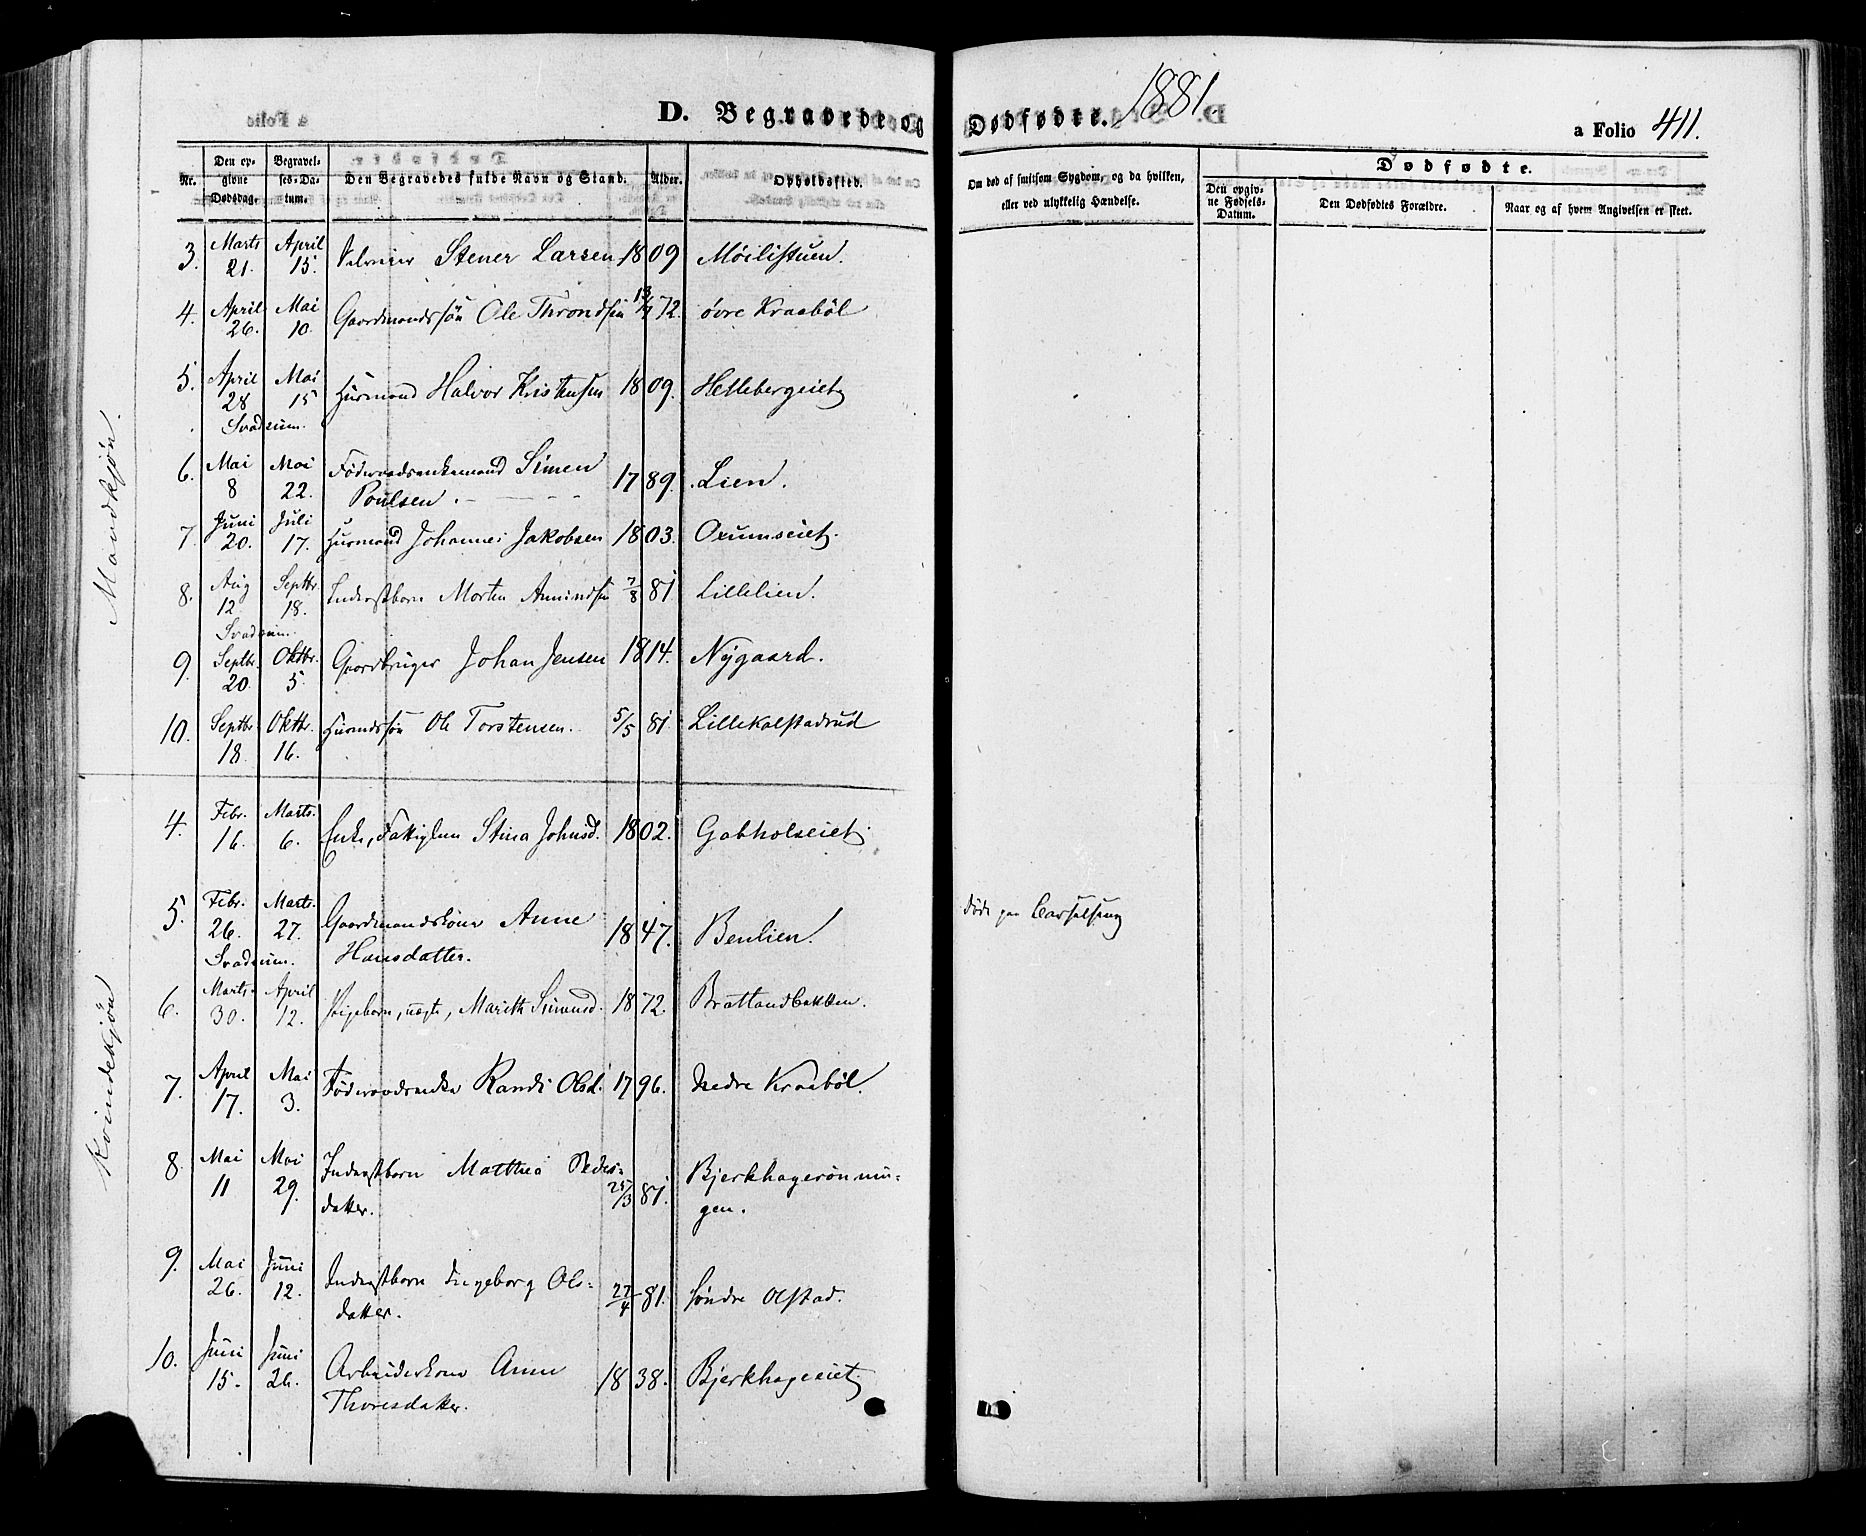 1881
D. Begravede og Dødfødte.
a Folio 411.
Nr.
Den opgivne Dødsdag.
Begravelses-Datum.
Den Begravedes fulde Navn og Stand.
Alder.
Opholdssted.
Om død af smitsom Sygdom, og da hvilken, eller ved ulykkelig Hændelse.
Dødfødte.
Den opgivne Fødsels-Datum.
Den Dødfødtes Forældre.
Naar og af hvem Angivelsen er skeet.
Mandkjøn.
3. Marts 21. April 15. Stener Larsen 1809 Møilistuen.
4. April 26. Mai 10. Gaardmandssøn Ole Throndsen 13/7 72. øvre Kraabøl
5. April 28 Mai 15 Husmand Halvor Kristensen 1809. Hellebergeiet
Svadsum.
6. Mai 8 Mai 22. Føderaadsenkemand Simen
Poulsen. 1789. Lien.
7. Juni 20. Juli 17. Husmand Johannes Jakobsen 1803. Oxumseiet.
8. Aug 12. Septbr. 18. Inderstbarn Morten Amundsen 7/8 81 Lillelien.
Svadsum.
9. Septbr. 20. Oktbr. 5. Gaardbruger Johan Jensen 1814. Nygaard.
10. Septbr. 18. Oktbr. 16. Husmdssøn Ole Torstensen. 5/5 81. Lillekolstadrud
Kvindekjøn
4. Febr. 16. Marts. 6. Enke, Fattiglem Stina Johnsd. 1802. Gabholseiet.
5. Febr. 26. Marts. 27. Gaardmandskone Anne
Hansdatter. 1847. Benlien. døde paa Barselseng
Svadsum.
6. Marts 30. April 12. Pigebarn, uægte, Marith Simensd. 1872. Brattandbakken.
7. April 17. Mai 3. Føderaadsenke Randi Olsd. 1796. Nedre Kraabøl.
8. Mai 11 Mai 29. Inderstbarn Mathea Peders-
datter. 25/3 81. Bjerkhagerønnin-
gen.
9. Mai 26. Juni 12. Inderstbarn Ingeborg Ols-
datter. 27/4 81. søndre Olstad.
10. Juni 15. Juni 26. Arbeiderkone Anne
Thoresdatter. 1838. Bjerkhageeiet